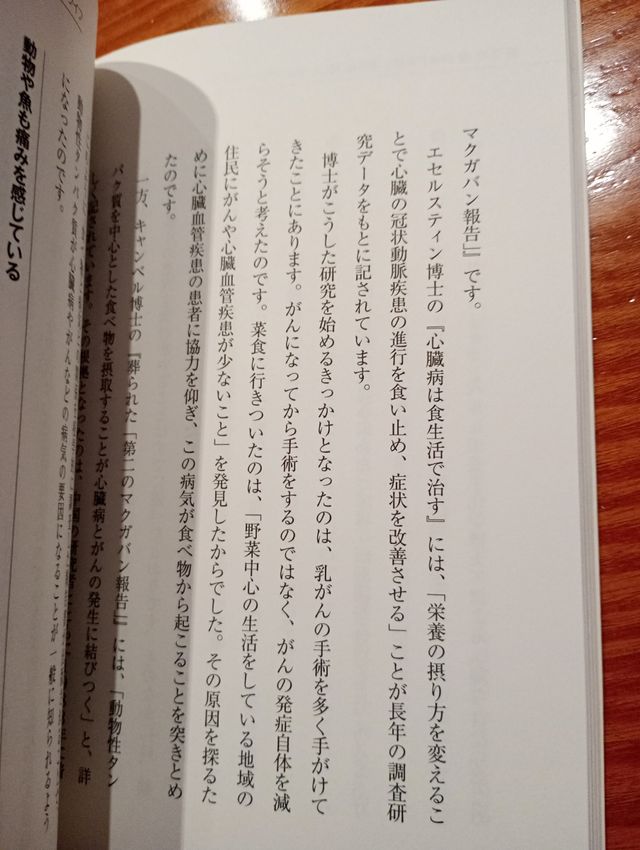 マクガバン報告』』です。
エセルスティン博士の『心臓病は食生活で治す』には、「栄養の摂り方を変えるこ
とで心臓の冠状動脈疾患の進行を食い止め、症状を改善させる」ことが長年の調査研
究データをもとに記されています。
博士がこうした研究を始めるきっかけとなったのは、乳がんの手術を多く手がけて
きたことにあります。がんになってから手術をするのではなく、がんの発症自体を減
らそうと考えたのです。菜食に行きついたのは、「野菜中心の生活をしている地域の
住民にがんや心臓血管疾患が少ないこと」を発見したからでした。その原因を探るた
めに心臓血管疾患の患者に協力を仰ぎ、この病気が食べ物から起こることを突きとめ
たのです。
一方、キャンベル博士の『葬られた「第二のマクガバン報告』』には、「動物性タン
パク質を中心とした食べ物を摂取することが心臓病とがんの発生に結びつく」と、詳
されています。その根拠となったのは、中国の研究者と
動物性タンパク質が心臓病やがんなどの病気の要因になることが一般に知られるよう
になったのです。
動物や魚も痛みを感じている